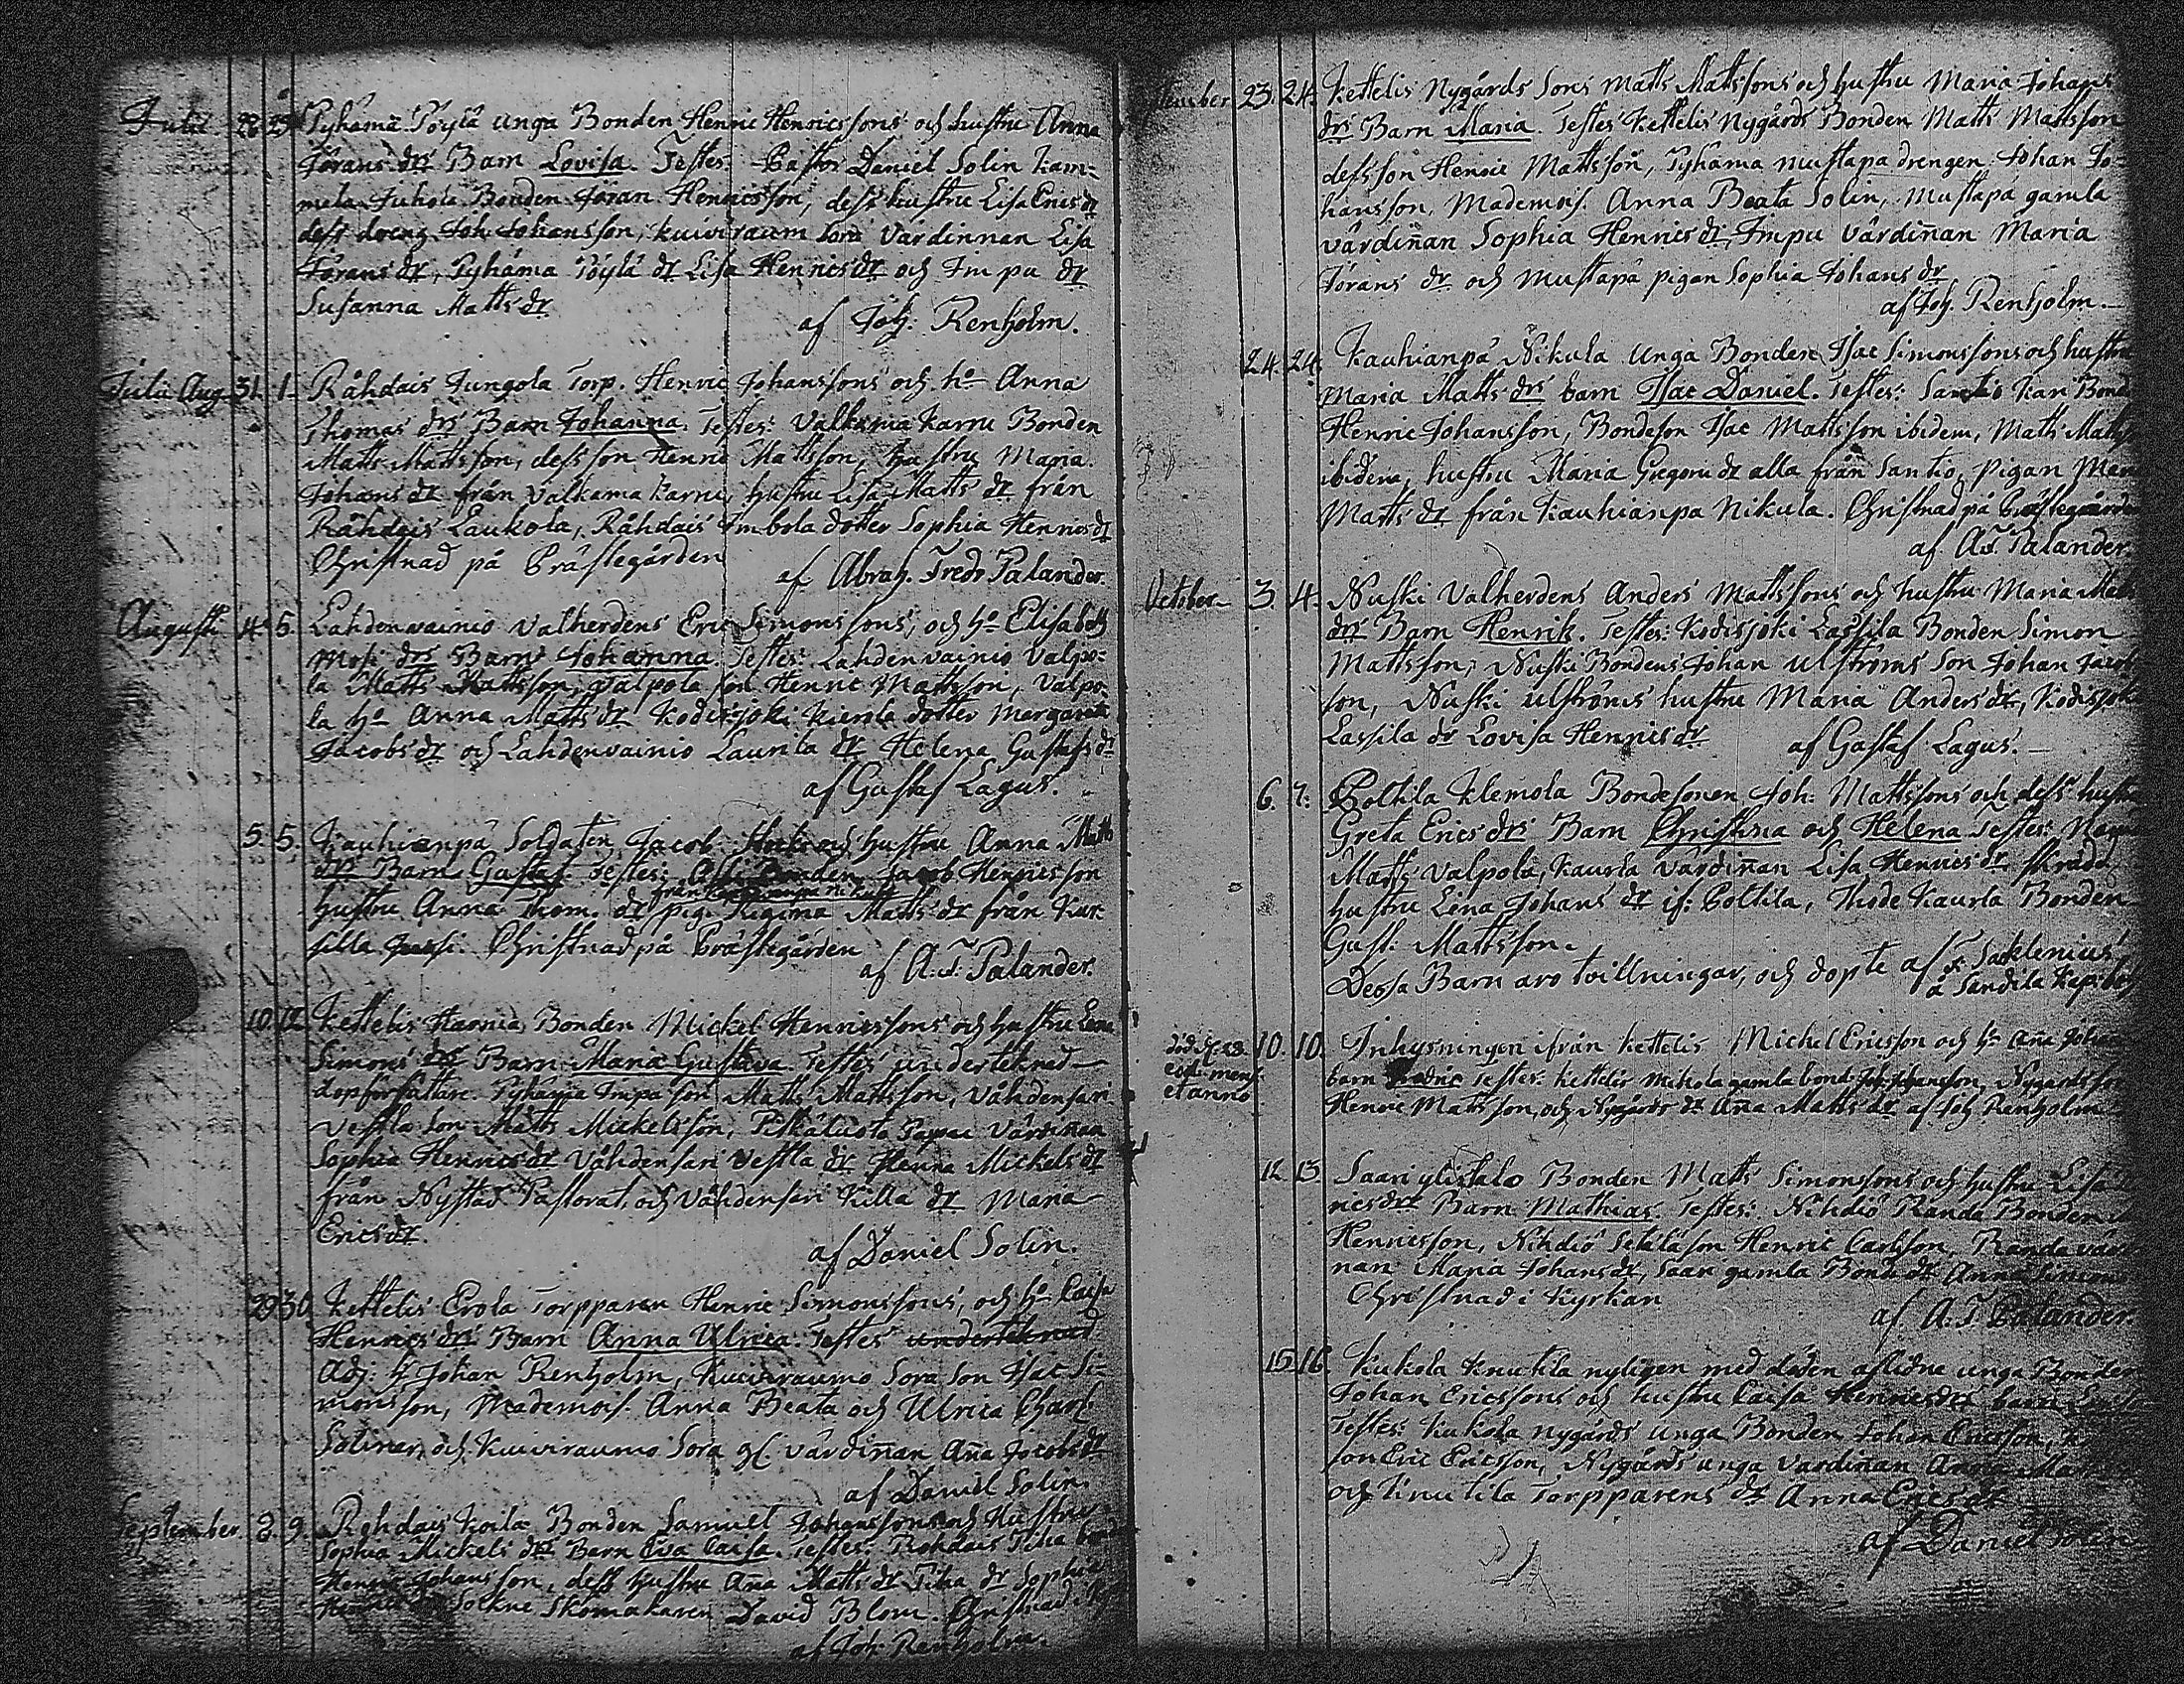 Julii 28 29 Pyhämä Pöylä unga Bonden Henric Henricssons och hustru Anna
Jörans drs Barn Lovisa. Testes: Pastor Daniel Solin kam-
mela Juhola Bonden Jöran Henricsson, dess hustru Lisa Erics dr
dess dreng Joh. Johansson, kuiviraum Sora Värdinnan Lisa
Jörans dr, Pyhämä Pöylä dr Lisa Henrics dr och Impu dr
Susanna Matts dr
af Joh: Renholm.
Julii Aug. 31. 1. Råhdais Jungola Torp. Henric Johanssons och ho Anna
Thomas drs Barn Johanna. Testes: Valkama Karru Bonden
Matts Mattsson, dess son Henric Mattsson, hustru Maria
Johans dr från Valkama Karru, hustru Lisa Matts dr från
Råhdais Laukola, Råhdais Imbola dotter Sophia Henrics dr
Christnad på Prästegården
af Abrah. Fredr Palander.
Augusti 4. 5. Lahdenvainio Valherdens Eric Simonssons, och ho Elisabeth
Mosis drs Barn Johanna. Testes: Lahdenvainio Valpo-
la Matts Mattsson, Valpola son Henric Mattsson, Valpo-
la ho Anna Matts dr Kodisjoki Kierola dotter Margareta
Jacobs dr och Lahdenvainio Laurila dr Helena Gustafs dr
af Gustaf Lagus.
5. 5. Kauhianpä Soldaten Jacob och hustru Anna Matts
drs Barn Gustaf. Testes: Bonden Jacob Henricsson
från
hustru Anna Thom. dr pig. Regina Matts dr från Kur-
silla. Christnad på Prästegården
af A. F. Palander.
10. 12. Kettelis Haenia Bonden Mickel Henricssons och hustru Lena
Simons drs Barn Maria Gustava. Testes underteknad
dopförfattare. Pyhämä Impa son Matts Mattsson, Vähdensari
Vestla son Matts Mickelsson, Pitkäluoto Papai Värdinnan
Sophia Henrics dr Vähdensari Vestla dr Henna Mickels dr
från Nystad Pastorat, och Vähdensari Killa dr Maria
Erics dr.
af Daniel Solin.
29 30 Kettelis Erola Torpparen Henric Simonssons, och ho Caisa
Henrics drs Barn Anna Ulrica. Testes underteknad
Adj: H. Johan Renholm, Kuiviraumo Sora Son Isac Si-
monsson, Mademois. Anna Beata och Ulrica Charl.
Soliner, och Kuiviraumo Sora gl värdiñan Aña Jacobs dr
af Daniel Solin.
September. 8. 9. Rohdais Koila Bonden Samuel Johanssons och Hustru
Sophia Mickels drs Barn Eva Caisa. Testes: Rohdais Piha
Henric Johansson, dess hustru Aña Matts dr Piha dr Sophia
Sockne Skomakaren David Blom. Christnad
af Joh: Renholm.
23. 24. Kettelis Nygårds Sons Matts Mattssons och hustru Maria Johans
drs Barn Maria. Testes Kettelis Nygårds Bonden Matts Mattsson
dess son Henric Mattsson, Pyhämä Mustapä drengen Johan Jo-
hansson, Mademois. Anna Beata Solin, Mustapä gamla
värdiñan Sophia Henrics dr, Impu värdiñan Maria
Jörans dr och Mustapä pigan Sophia Johans dr
af Joh. Renholm.
24. 24. Kauhianpä Nikula Unga Bonden Isac Simonssons och hustru
Maria Matts drs barn Isac Daniel. Testes: Santio Kari Bond
Henric Johansson, Bondeson Isac Mattsson ibidem, Matts Matts
ibidem, hustru Maria Gregori dr alla från Santio, Pigan
Matts dr från Kauhianpä Nikula. Christnad på Prästegården
af A. F. Palander.
October. 3. 4. Nuski Valherdens Anders Mattssons och hustru Maria Matts
drs Barn Henrik. Testes: Kodisjoki Lassila Bonden Simon
Mattsson, Nuski Bondens Johan Ulströms Son Johan Jacob
son, Nuski Ulströms hustru Maria Anders dr, Kodisjoki
Lassila dr Lovisa Henrics dr
af Gustaf Lagus.
6. 7. Poltila Klemola Bondesonen Joh: Mattssons och dess hustru
Greta Erics drs Barn Christina och Helena Testes:
Matts Valpola, Kaurla värdiñan Lisa Henrics dr skrädd
hustru Lena Johans dr if: Poltila, Ihode Kaurla Bonden
Gust: Mattsson.
Dessa Barn äro tvillningar, och döpte af
10. 10. Inhysningen ifrån Kettelis Michel Ericsson och ho Aña Johans
barn Fredric Testes: Kettelis Mikola gamla bond. Joh. Johansson, Nygårds son
Henric Mattsson, och Nygårds dr Aña Matts dr af Joh Renholm
död d. 28.
eod: mens.
et anno
12. 13. Saari ylistalo Bonden Matts Simonssons och hustru Lisa
rics drs Barn Mathias. Testes: Nihdiö Randa Bonden
Henricsson, Nihdiö Setälä son Henric Carlsson, Randa vär
nan Maria Johans dr, Saari gamla Bond dr Anna Simons
Christnad i Kyrkan
af A. F. Palander.
15. 16. Kukola Knutila nyligen med döden aflidne unga Bonden
Johan Ericssons och hustru Caisa Henrics drs barn
Testes: Kukola Nygårds unga Bonden Johan Ericsson,
son Eric Ericsson, Nygårds unga Värdiñan Anna
och Knutila Torpparens dr Anna Erics dr
af Daniel Solin